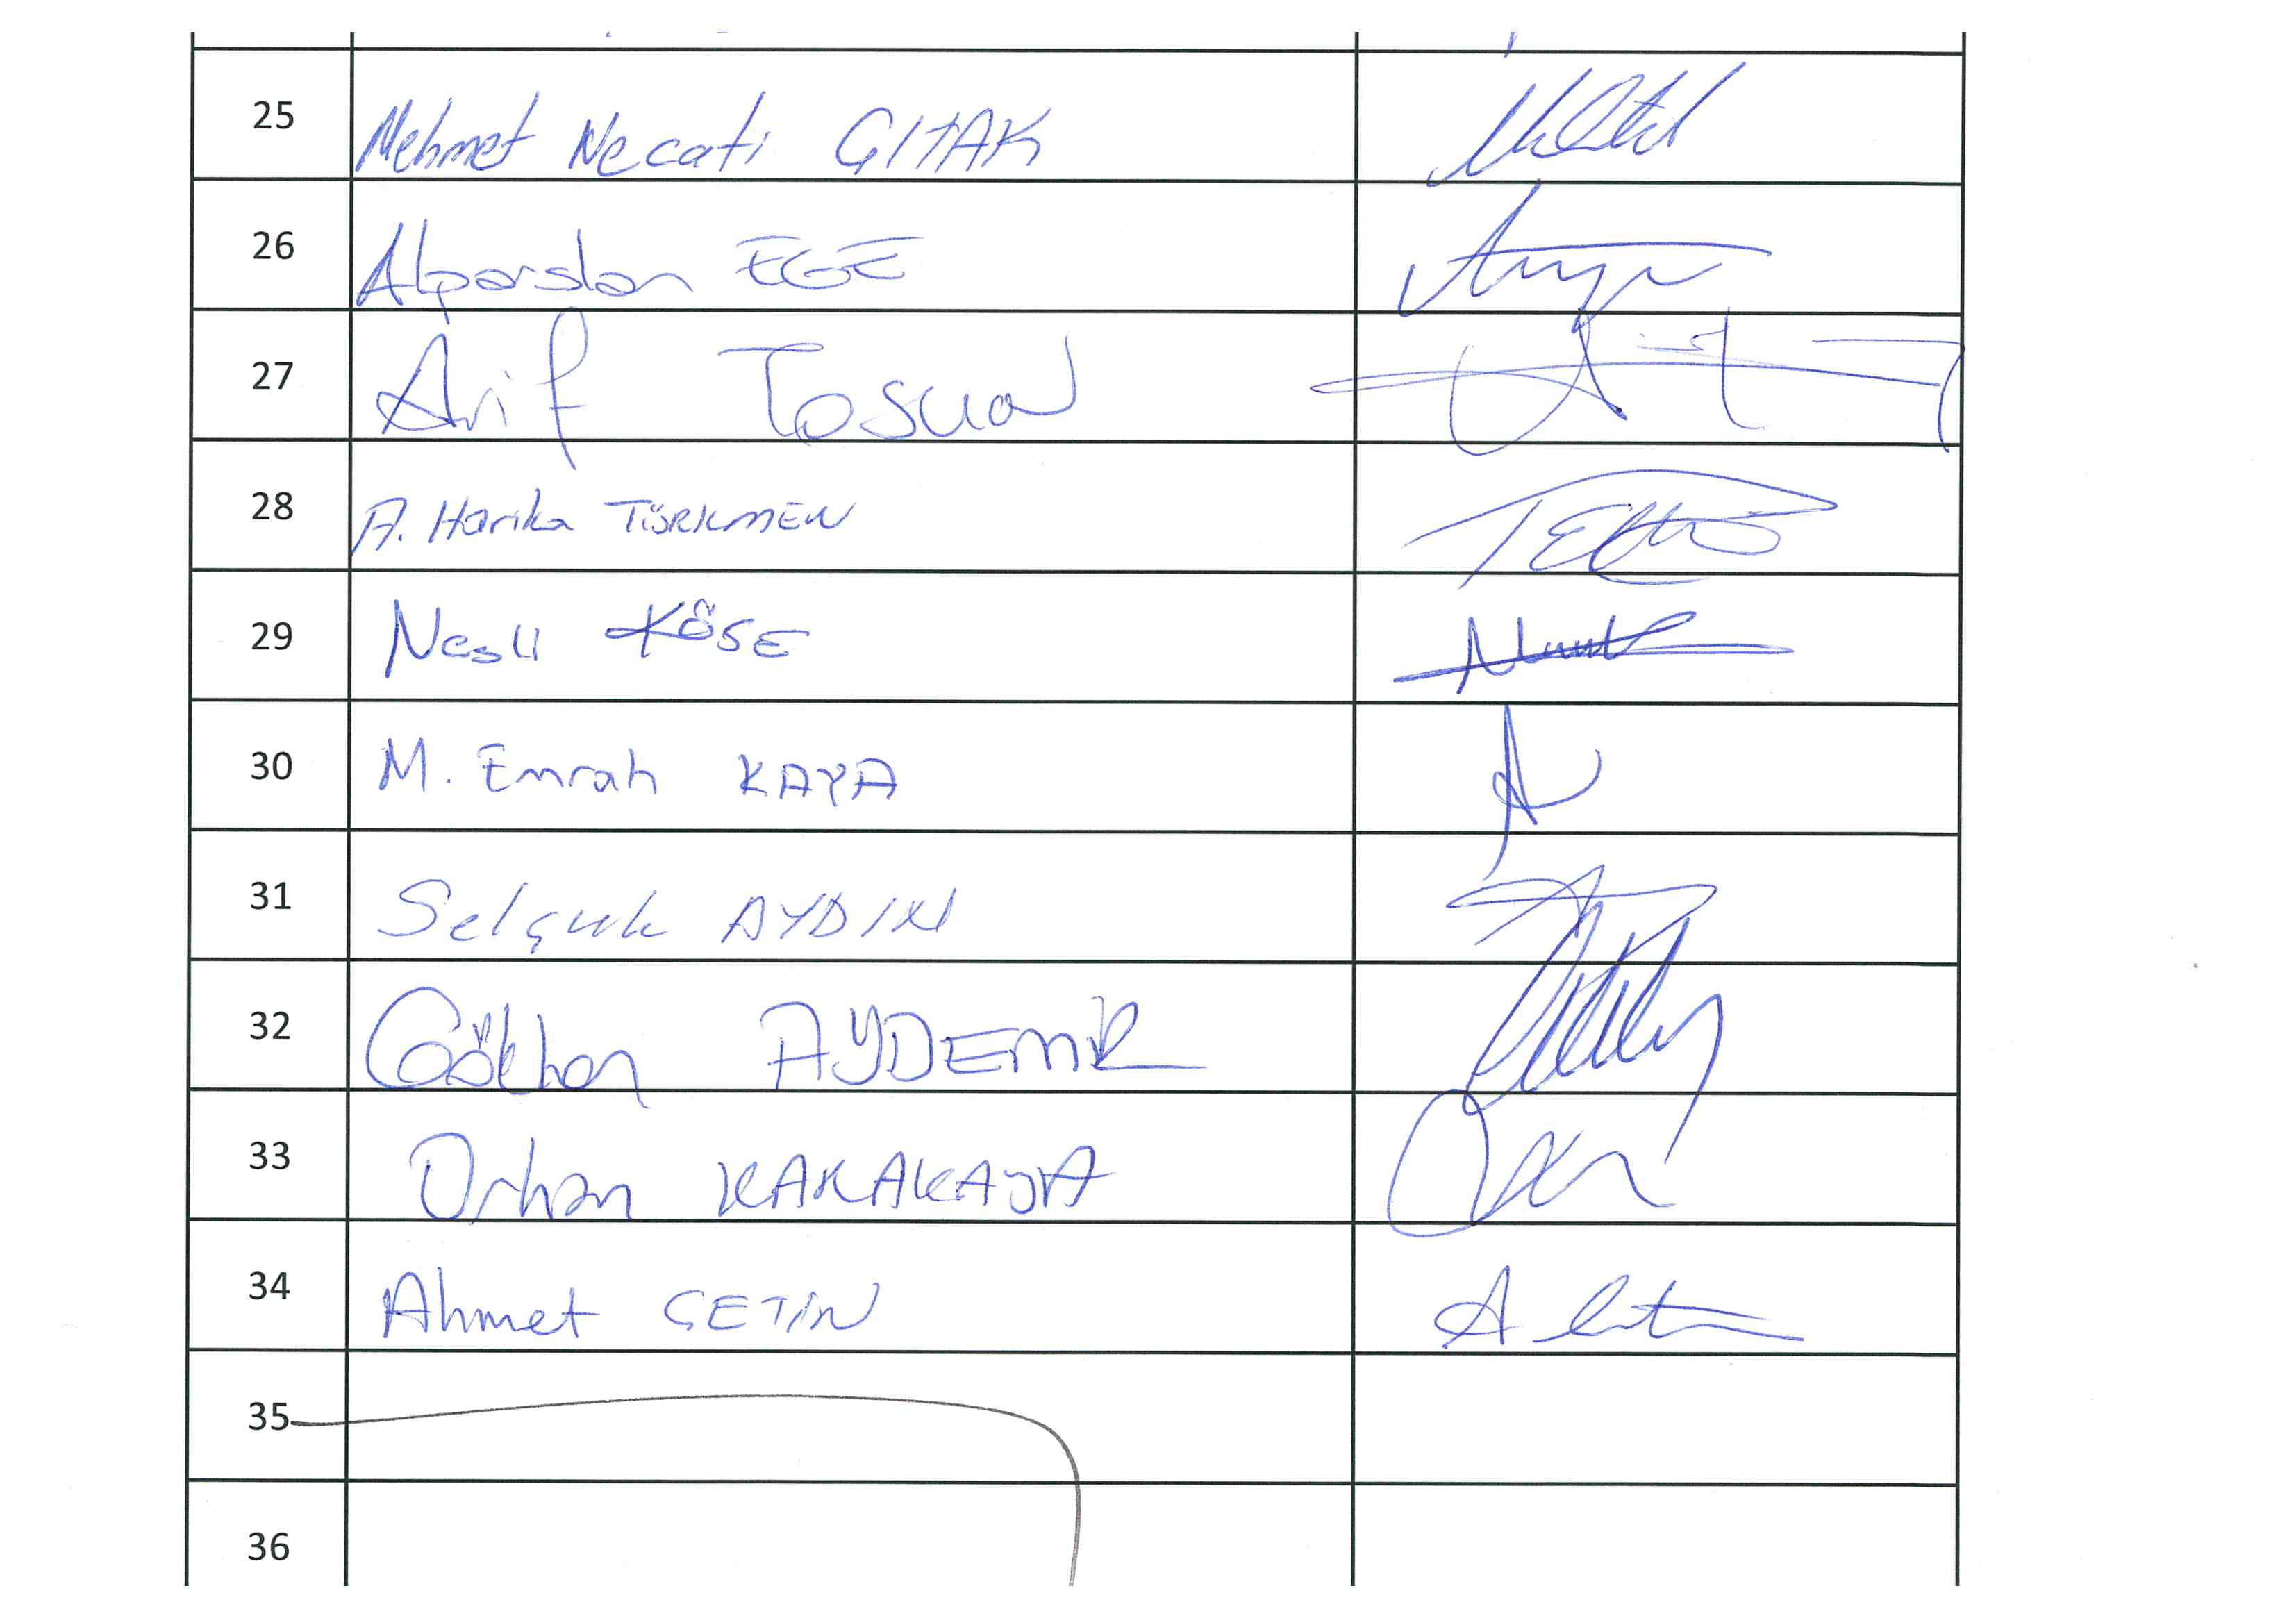 25 Mehmet Necati ÇITAK
26 Alparslan EGE
27 Arif Tosun
28 A. Harika TÜRKMEN
29 Neslı KÖSE
30 M. Emrah KAYA
31 Selçuk AYDIN
32 Gökhan AYDEMİR
33 Orhan KARAKAYA
34 Ahmet ÇETİN
35
36